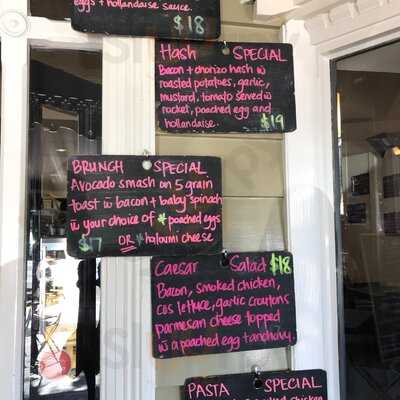 eggs + hollandaise sauce.
$18
Hash SPECIAL
Bacon + chorizo hash w
roasted potatoes, garlic,
mustard, tomato served w
rocket, poached egg and
hollandaise.
$19
BRUNCH SPECIAL
Avocado smash on 5 grain
toast w bacon + baby spinach
w your choice of * poached eggs
$17 OR * haloumi cheese
Caesar Salad $18
Bacon, smoked chicken,
cos lettuce, garlic croutons
parmesan cheese topped
w a poached egg + anchovy.
PASTA SPECIAL
chicken